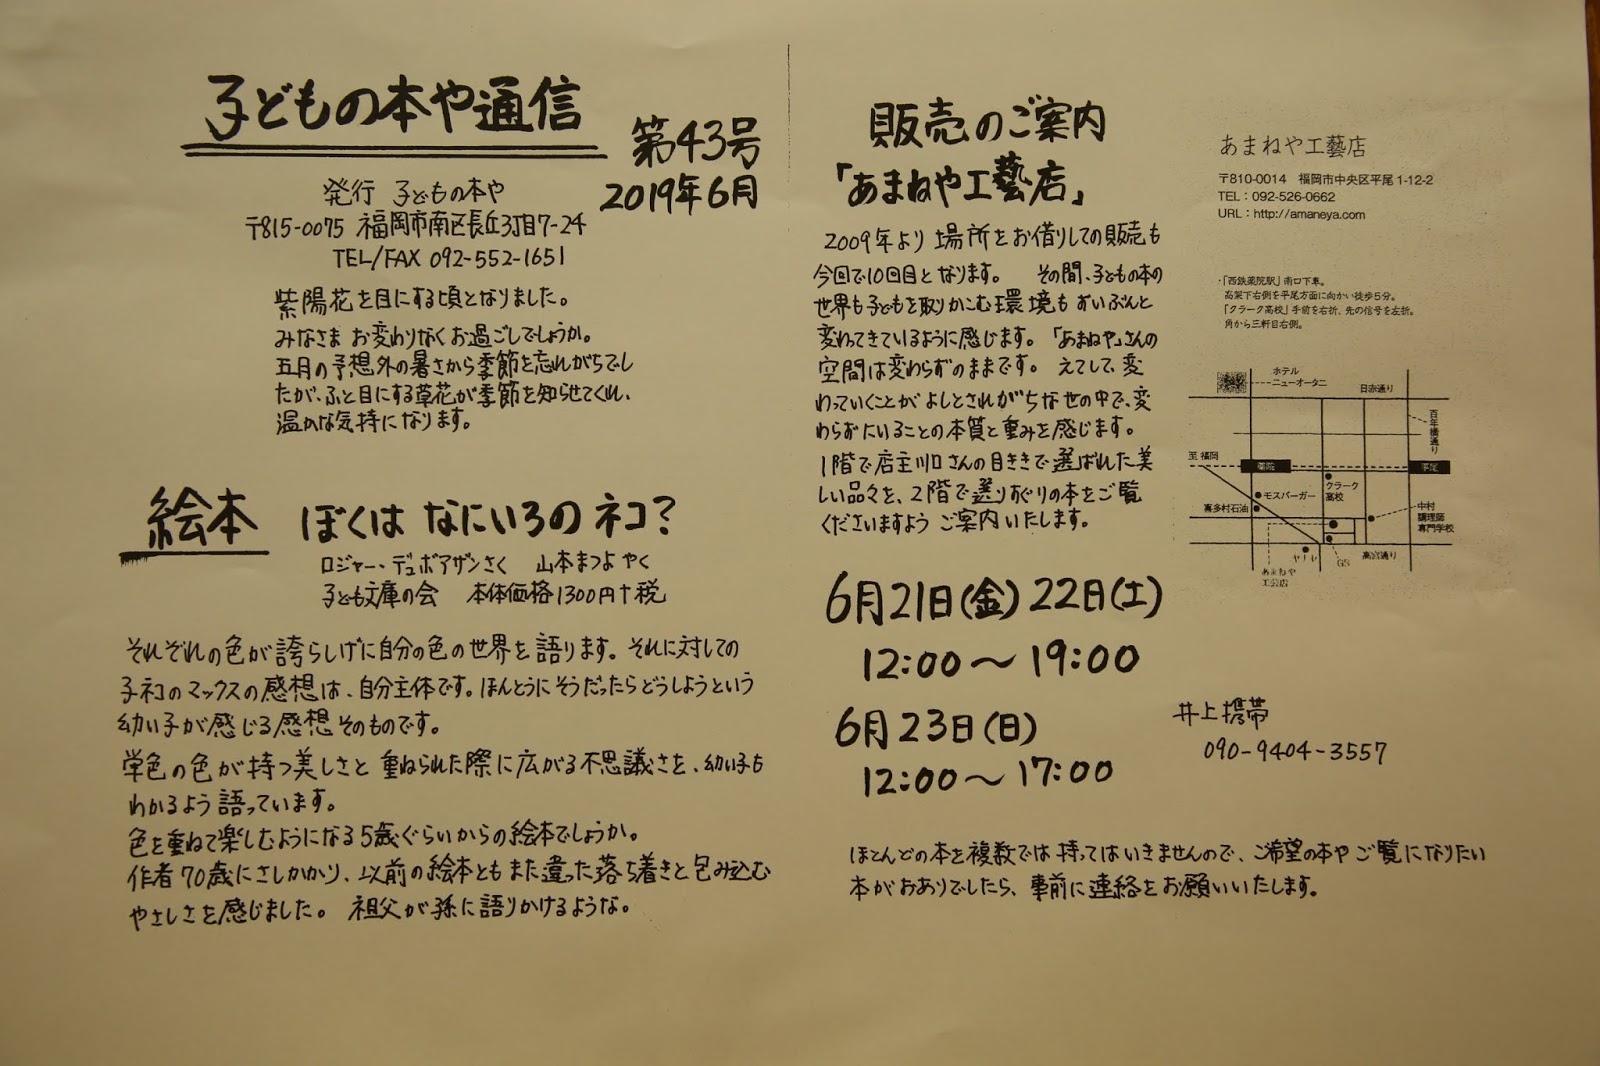 子どもの本や通信
第43号
2019年6月
発行 子どもの本や
〒815-0075 福岡市南区長丘3丁目7-24
TEL/FAX 092-552-1651
紫陽花を目にする頃となりました。
みなさま お変わりなくお過ごしでしょうか。
五月の予想外の暑さから季節を忘れがちでし
たが、ふと目にする草花が季節を知らせてくれ、
温かな気持になります。
絵本 ぼくは なにいろの ネコ?
ロジャー・デュボアザンさく 山本まつよ やく
子ども文庫の会 本体価格1300円+税
それぞれの色が誇らしげに自分の色の世界を語ります。それに対しての
子ネコのマックスの感想は、自分主体です。ほんとうにそうだったらどうしようという
幼い子が感じる感想そのものです。
学色の色が持つ美しさと 重ねられた際に広がる不思議さを、幼い子も
わかるよう語っています。
色を重ねて楽しむようになる5歳ぐらいからの絵本でしょうか。
作者70歳にさしかかり、以前の絵本ともまた違った落ち着きと包み込む
やさしさを感じました。 祖父が孫に語りかけるような。
販売のご案内
「あまねや工藝店」
2009年より 場所をお借りしての販売も
今回で10回目となります。 その間、子どもの本の
世界も子どもを取りかこむ環境も ずいぶんと
変わってきているように感じます。「あまねや」さんの
空間は変わらずのままです。 えてして、変
わっていくことが よしとされがちな世の中で、変
わらずにいることの本質と重みを感じます。
1階で店主川口さんの目ききで選ばれた美
しい品々を、2階で選りすぐりの本をご覧
くださいますよう ご案内いたします。
6月21日(金) 22日(土)
12:00〜19:00
6月23日(日)
12:00〜17:00
あまねや工藝店
〒810-0014 福岡市中央区平尾1-12-2
TEL:092-526-0662
URL:http://amaneya.com
・「西鉄薬院駅」南口下車。
高架下右側を平尾方面に向かい徒歩5分。
「クラーク高校」手前を右折、先の信号を左折。
角から三軒目右側。
ホテル
ニューオータニ
日赤通り
百年橋通り
至 福岡
薬院
平尾
クラーク
高校
モスバーガー
喜多村石油
中村
調理師
専門学校
高宮通り
GS
あまねや
工芸店
井上携帯
090-9404-3557
ほとんどの本を複数では持ってはいきませんので、ご希望の本や ご覧になりたい
本がおありでしたら、事前に連絡をお願いいたします。